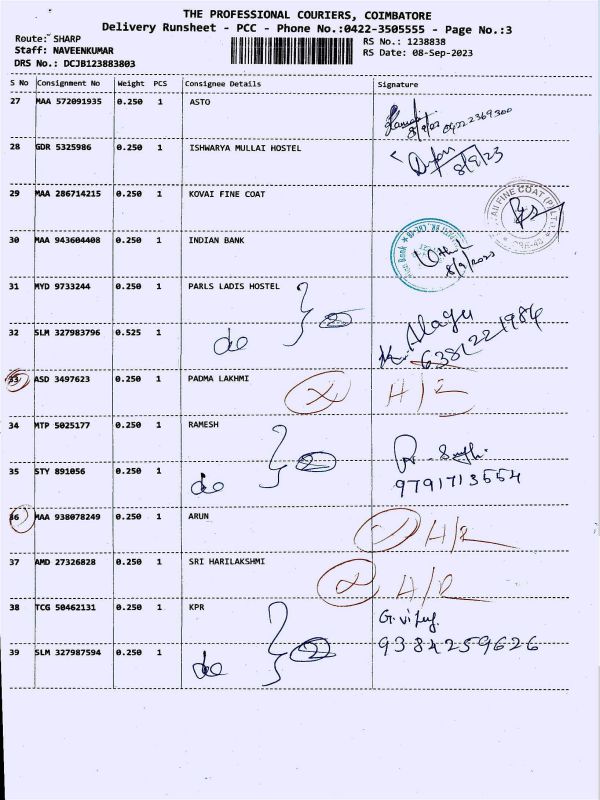 THE PROFESSIONAL COURIERS, COIMBATORE
Delivery Runsheet - PCC - Phone No.:0422-3505555 - Page No.:3
Route: SHARP
RS No.: 1238838
Staff: NAVEENKUMAR
RS Date: 08-Sep-2023
DRS No.: DCJB123883803
S No Consignment No Weight PCS Consignee Details Signature
27 MAA 572091935 0.250 1 ASTO
8/9/23 04222369300
28 GDR 5325986 0.250 1 ISHWARYA MULLAI HOSTEL
8/9/23
29 MAA 286714215 0.250 1 KOVAI FINE COAT
FINE COAT (P) LTD
30 MAA 943604408 0.250 1 INDIAN BANK
8/9/2023
31 MYD 9733244 0.250 1 PARLS LADIS HOSTEL 2
Alagu
32 SLM 327983796 0.525 1 do
6381221984
33 ASD 3497623 0.250 1 PADMA LAKHMI
34 MTP 5025177 0.250 1 RAMESH
35 STY 891056 0.250 1 do 2
9791713554
36 MAA 938078249 0.250 1 ARUN
37 AMD 27326828 0.250 1 SRI HARILAKSHMI
38 TCG 50462131 0.250 1 KPR
39 SLM 327987594 0.250 1 do 2 9384259626